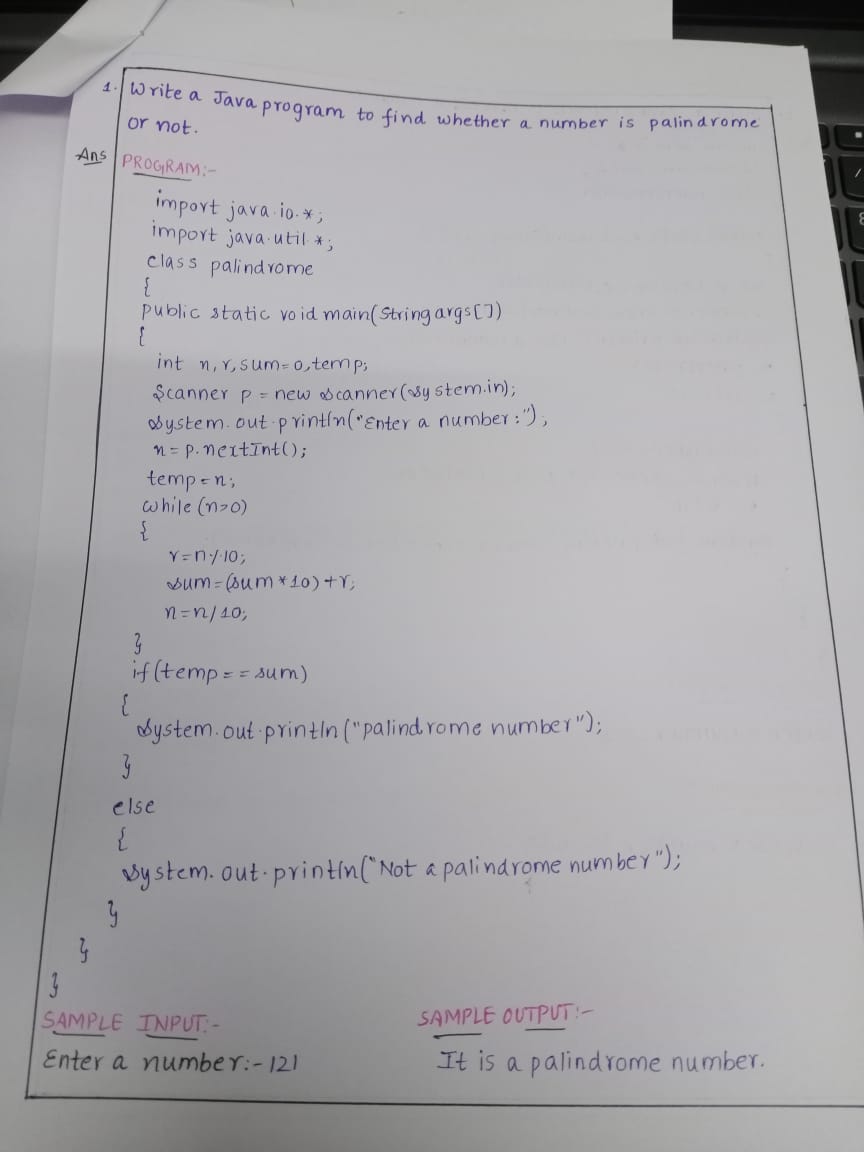 1. Write a Java program to find whether a number is palindrome
or not.
Ans PROGRAM:-
import java.io.*;
import java.util.*;
class palindrome
{
public static void main(String args[])
{
int n,r,sum=0,temp;
Scanner p = new Scanner(System.in);
System.out.println("Enter a number:");
n = p.nextInt();
temp=n;
while (n>0)
{
r=n%10;
sum=(sum*10)+r;
n=n/10;
}
if(temp==sum)
{
System.out.println("palindrome number");
}
else
{
System.out.println("Not a palindrome number");
}
}
}
SAMPLE INPUT:- SAMPLE OUTPUT:-
Enter a number:- 121 It is a palindrome number.